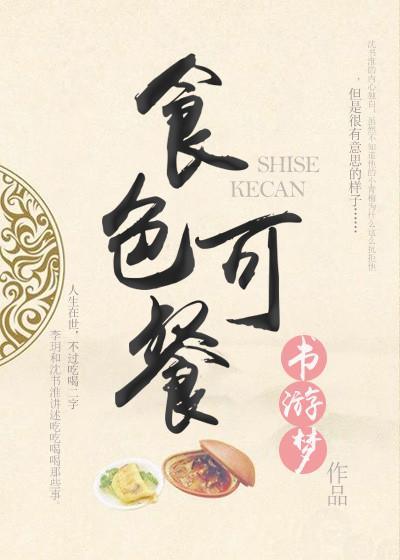 食色可餐
SHISE
KECAN
沈书淮的内心独白，虽然不知道他的小青梅为什么这么抗拒他
，但是很有意思的样子……
人生在世，不过吃喝二字
李玥和沈书淮讲述吃吃喝喝那些事.
书游梦
作品